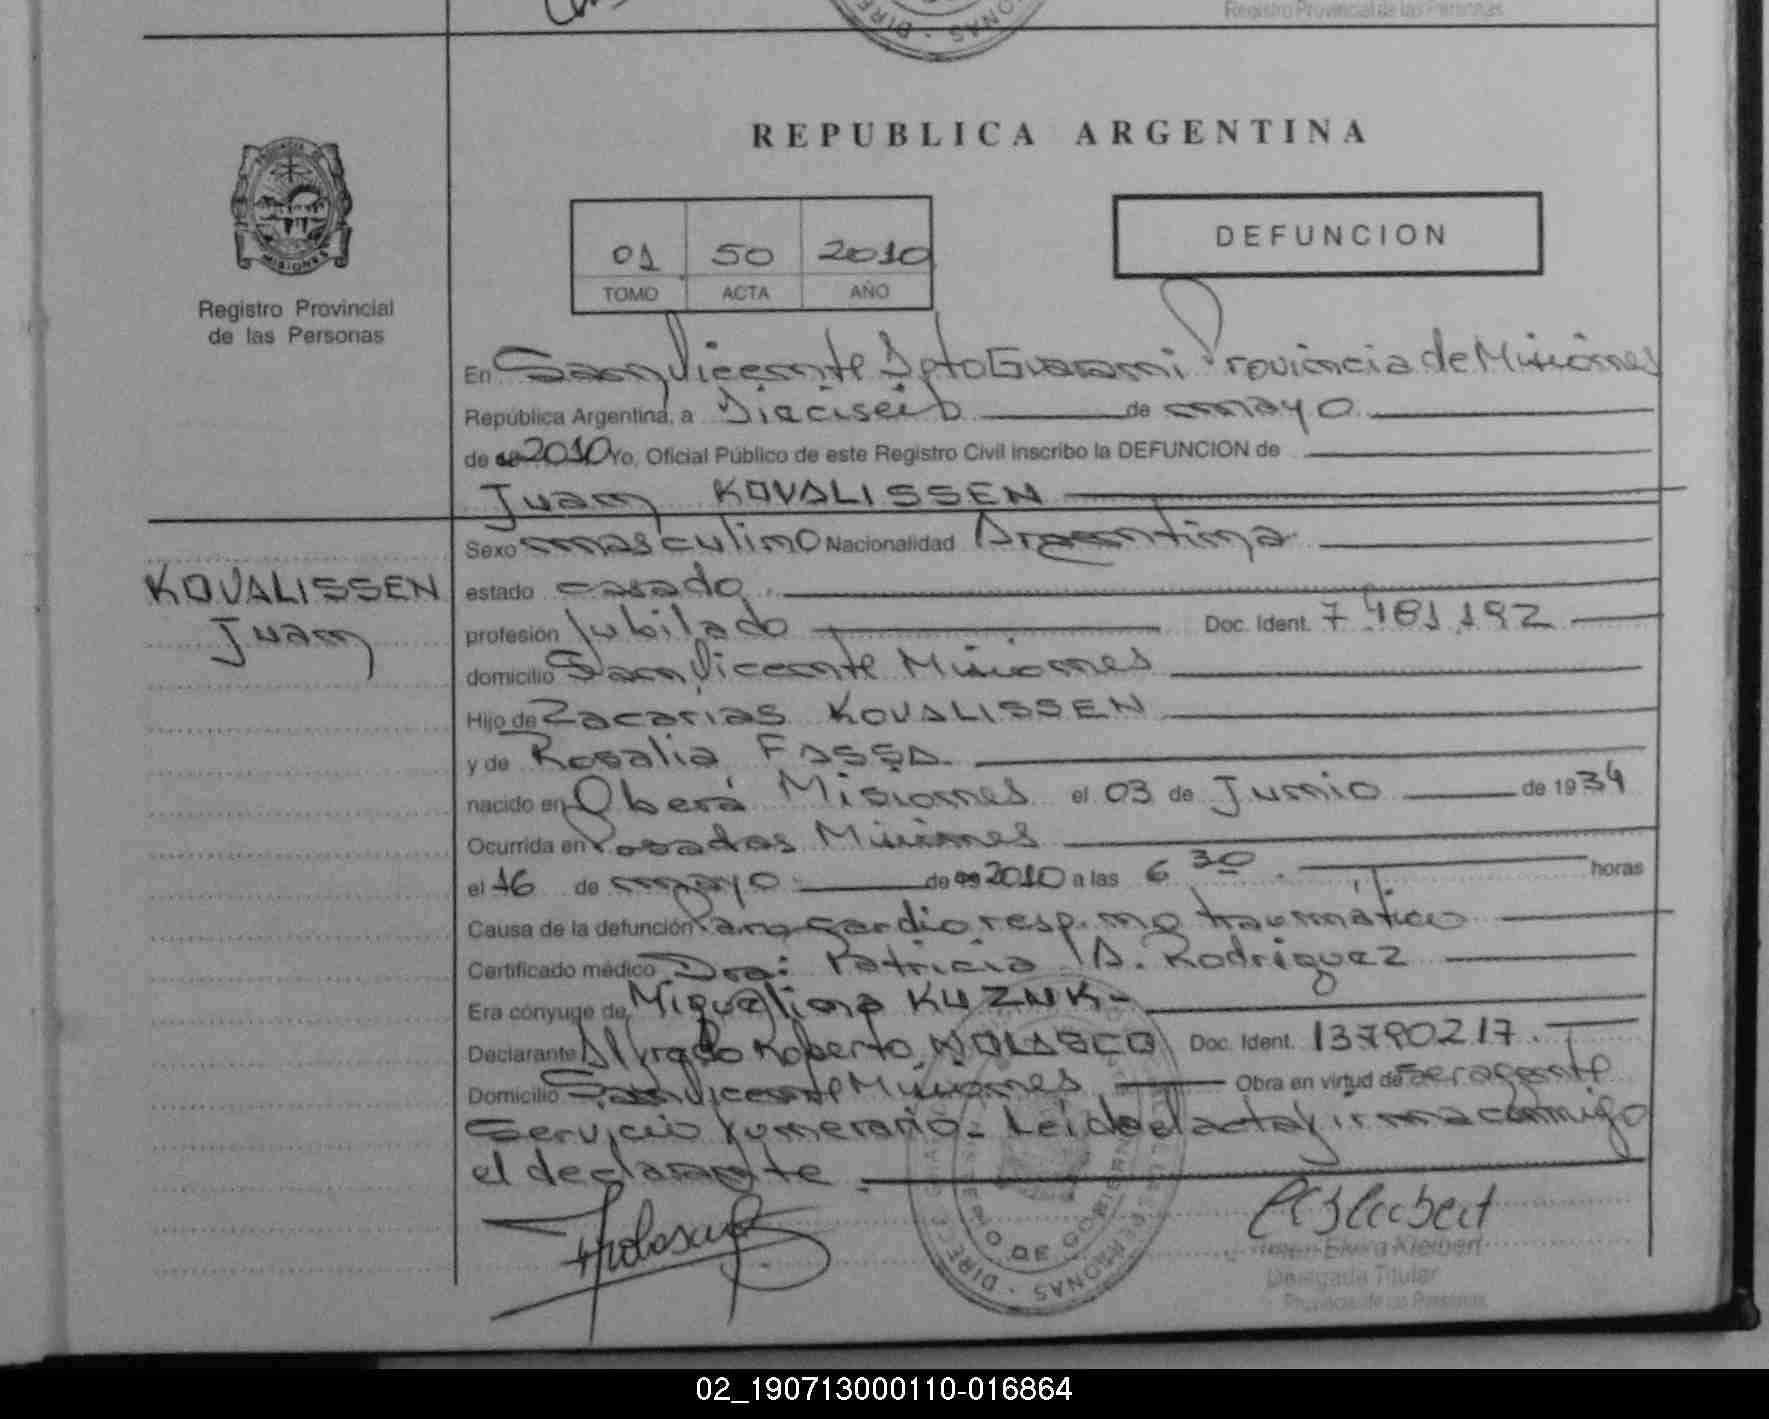 Registro Provincial de las Personas
REPUBLICA ARGENTINA
01 50 2010
TOMO ACTA AÑO
DEFUNCION
MISIONES
Registro Provincial
de las Personas
En San Vicente Dpto Guarani Provincia de Misiones
República Argentina, a Dieciseis de mayo
de 2010 Yo, Oficial Público de este Registro Civil inscribo la DEFUNCION de
Juan KOVALISSEN
Sexo masculino Nacionalidad Argentina
KOVALISSEN
Juan
estado casado
profesión Jubilado Doc. Ident. 7.481.192
domicilio San Vicente Misiones
Hijo de Zacarias KOVALISSEN
y de Rosalia FASSA
nacido en Oberá Misiones el 03 de Junio de 1934
Ocurrida en Posadas Misiones
el 16 de mayo de 2010 a las 6 30 horas
Causa de la defunción Paro cardio resp. no traumatico
Certificado médico Dra: Patricia A. Rodriguez
Era cónyuge de Miguelina KUZNK
Declarante Alfredo Roberto NOLASCO Doc. Ident. 13790217
Domicilio San Vicente Misiones Obra en virtud de ser agente
Servicio Funerario = Leida el acta firma conmigo
el declarante
DIREC PERSONAS
DE GOBIERNO
Elvira Kleibert
Delegada Titular
Provincial de las Personas
02_190713000110-016864